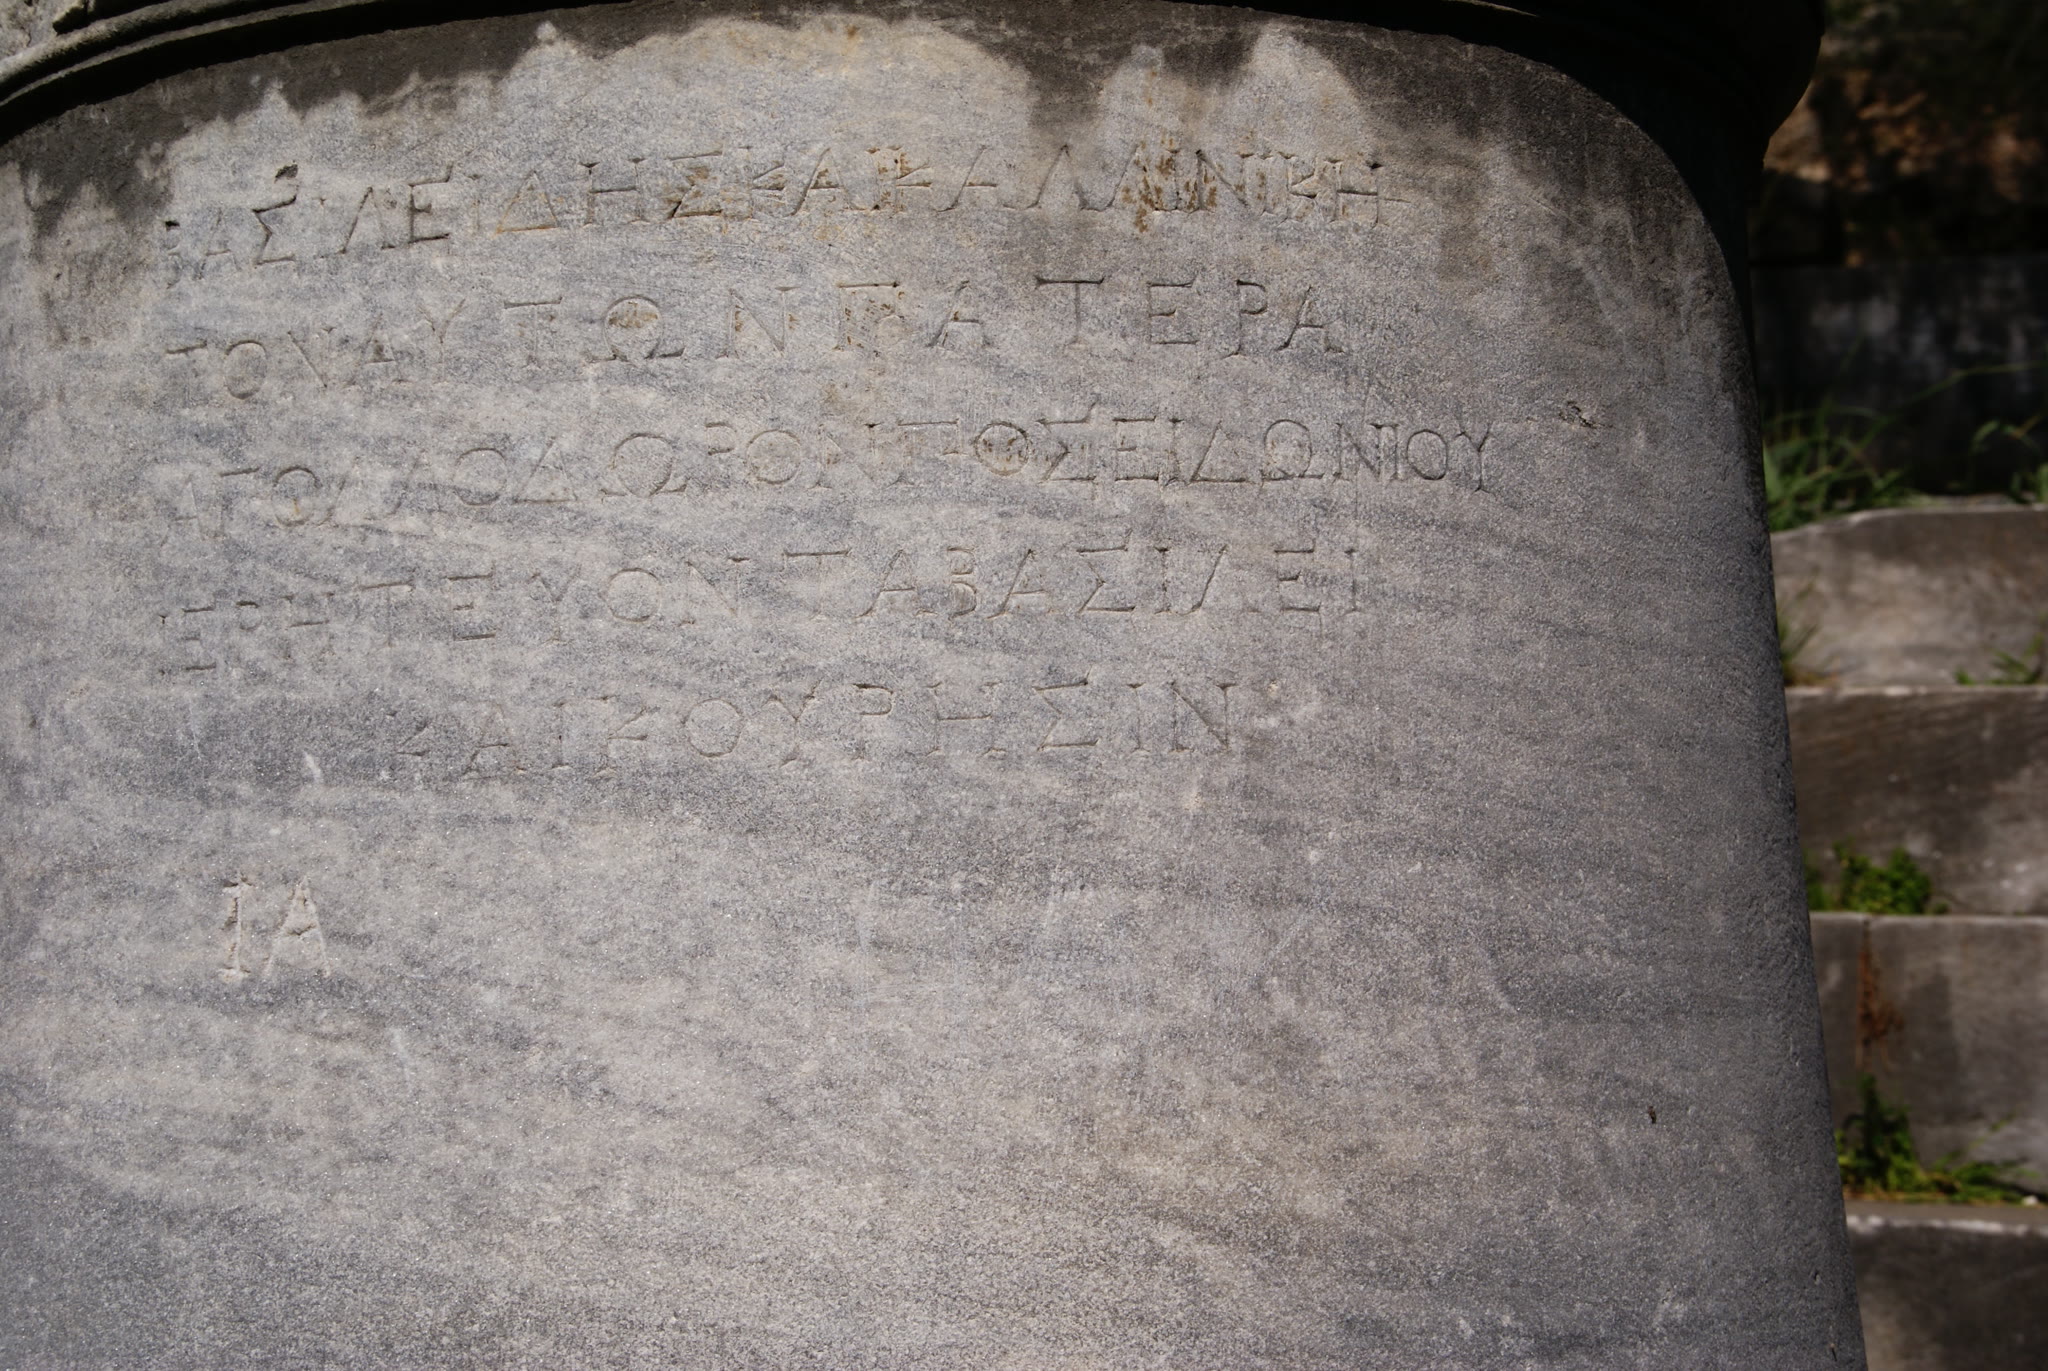 ΒΑΣΙΛΕΙΔΗΣΚΑΙΚΑΛΛΙΝΙΚΗ
ΤΟΝΑΥΤΩΝΠΑΤΕΡΑ
ΑΠΟΛΛΟΔΩΡΟΝΠΟΣΕΙΔΩΝΙΟΥ
ΙΕΡΗΤΕΥΟΝΤΑΒΑΣΙΛΕΙ
ΚΑΙΚΟΥΡΗΣΙΝ
ΙΑ